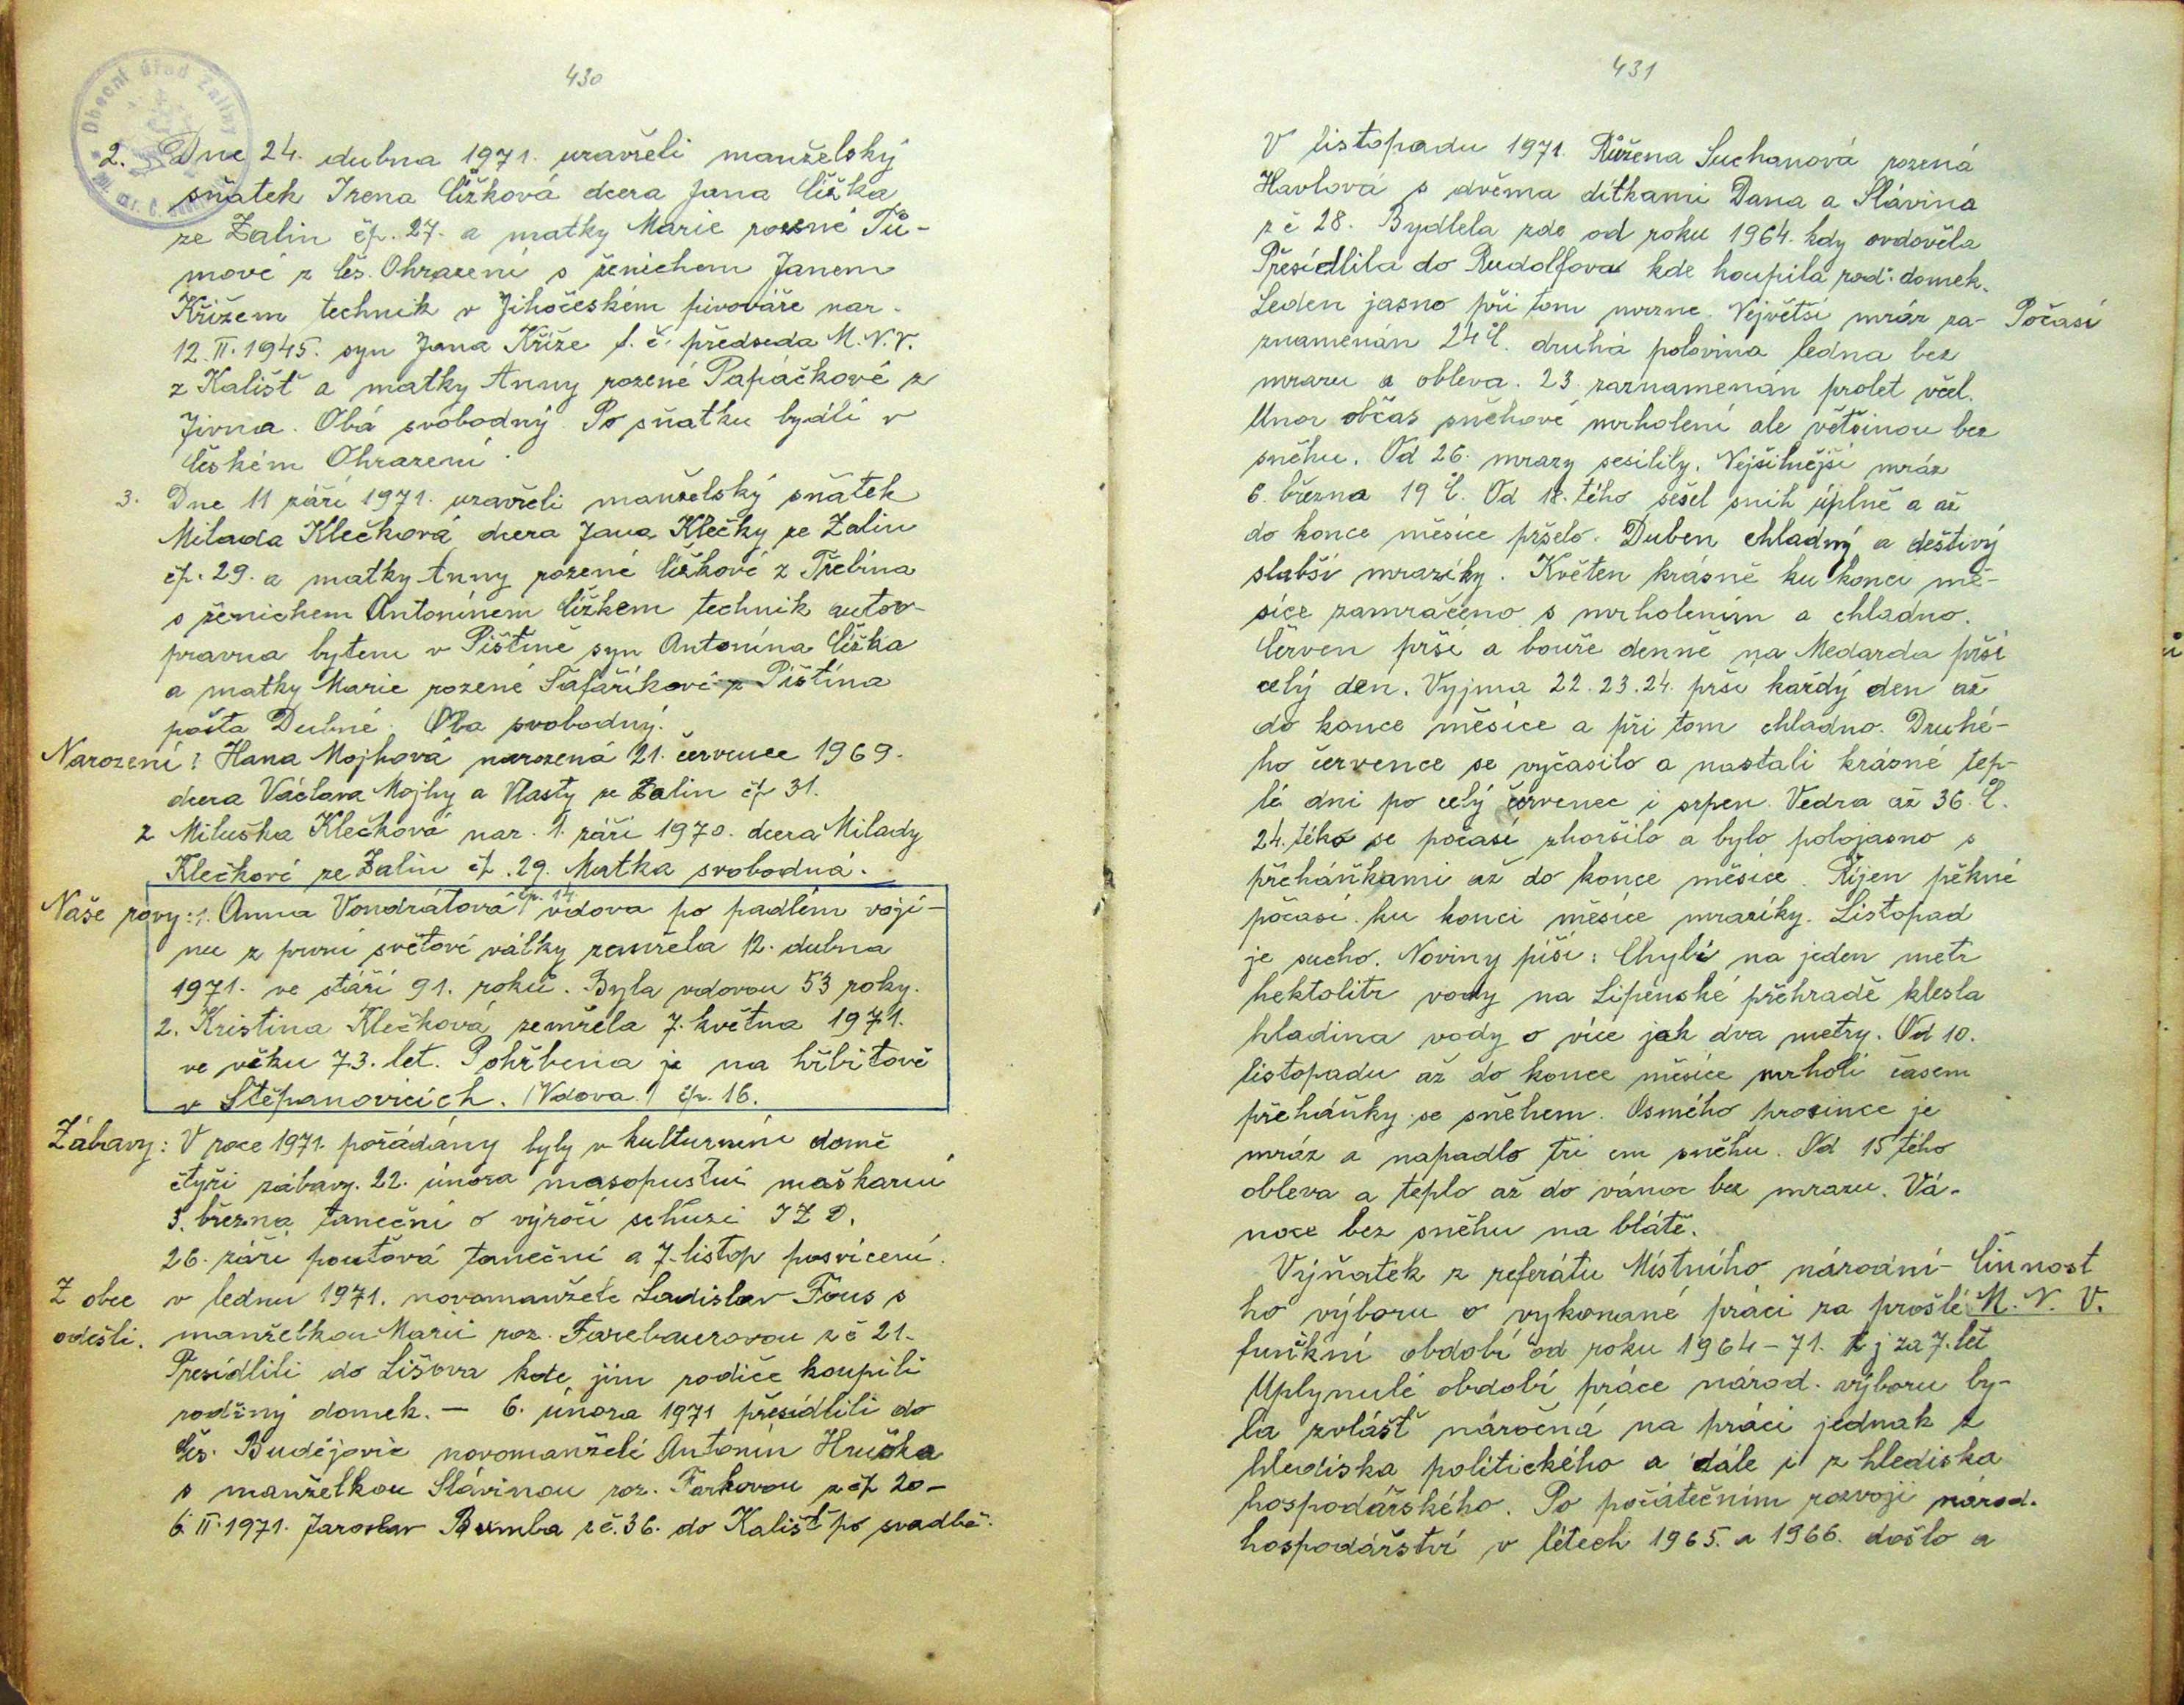 430
Obecní úřad Žaliny
2. Dne 24. dubna 1971. uzavřeli manželský
sňatek Irena Čížková dcera Jana Čížka
ze Zalin čp. 27. a matky Marie rozené Tů-
mové z Čes. Ohrazení s ženichem Janem
Křížem technik v Jihočeském pivováře nar.
12. II. 1945. syn Jana Kříže t. č. předseda M.N.V.
z Kališť a matky Anny rozené Papáčkové z
Jivna. Obá svobodný. Po sňatku bydlí v
Českém Ohrazení.
3. Dne 11 září 1971. uzavřeli manželský sňatek
Milada Klečková dcera Jana Klečky ze Zalin
čp. 29. a matky Anny rozené Čížkové z Třebína
s ženichem Antonínem Čížkem technik autoo-
pravna bytem v Pištíně syn Antonína Čížka
a matky Marie rozené Šafaříkové z Pištína
pošta Dubné. Oba svobodný.
Narození: Hana Mojhová narozená 21. července 1969.
dcera Václava Mojhy a Vlasty ze Zalin čp 31.
2 Miluška Klečková nar. 1. září 1970. dcera Milady
Klečkové ze Zalin čp. 29. Matka svobodná.
Naše rovy: 1. Anna Vondrátová čp. 14 vdova po padlém vojí-
nu z první světové války zemřela 12. dubna
1971. ve stáří 91. roků. Byla vdovou 53 roky.
2. Kristina Klečková zemřela 7. května 1971.
ve věku 73. let. Pohřbena je na hřbitově
v Štěpanovicích. (Vdova.) čp. 16.
Zábavy: V roce 1971. pořádány byly v kulturním domě
čtyři zábavy. 22. února masopustní maškarní
5. března taneční o výročí schuzi JZD.
26. září pouťová taneční a 7. listop posvícení.
Z obce v lednu 1971. novomanželé Ladislav Fous s
odešli. manželkou Marií roz. Farebaurovou z č 21.
Presídlili do Lišova kde jim rodiče koupili
rodiný domek. – 6. února 1971 přesídlili do
Čes. Budějovic novomanželé Antonín Hruška
s manželkou Slávinou roz. Farkovou z čp 20 –
6. II. 1971. Jaroslav Bumba z č. 36. do Kališť po svadbě.
431
V listopadu 1971. Růžena Suchanová rozená
Havlová s dvěma dítkami Dana a Slávina
z č 28. Bydlela zde od roku 1964. kdy ovdověla
Přesídlila do Rudolfova kde koupila rod. domek.
Leden jasno při tom mrzne. Největší mráz za- Počasí
znamenán 24°C. druhá polovina ledna bez
mrazu a obleva. 23. zaznamenán prolet včel.
Unor občas sněhové mrholení ale většinou bez
sněhu. Od 26. mrazy sesílily. Nejsilnější mráz
6. března 19°C. Od 18. tého sešel sníh úplně a až
do konce měsíce pršelo. Duben chladný a deštivý
slabší mrazíky. Květen krásně ku konci mě-
síce zamračeno s mrholením a chladno.
Červen prší a bouře denně na Medarda prší
celý den. Vyjma 22. 23. 24. prší každý den až
do konce měsíce a při tom chladno. Druhé-
ho července se vyčasilo a nastali krásné tep-
lé dni po celý červenec i srpen. Vedra až 36.°C.
24. tého se počasí zhoršilo a bylo polojasno s
přeháňkami až do konce měsíce. Říjen pěkné
počasí. ku konci měsíce mrazíky. Listopad
je sucho. Noviny píší: Chybí na jeden metr
hektolitr vody na Lipenské přehradě klesla
hladina vody o více jak dva metry. Od 10.
listopadu až do konce měsíce mrholí časem
přeháňky se sněhem. Osmého prosince je
mráz a napadlo tři cm sněhu. Od 15 tého
obleva a téplo až do vánoc bez mrazu. Vá-
noce bez sněhu na blátě.
Výňatek z referátu Místního národní- Činnost
ho výboru o vykonané práci za prošlé M. N. V.
funkční období od roku 1964 – 71. t j za 7. let
Uplynulé období práce národ. výboru by-
la zvlášť náročná na práci jednak z
hlediska politického a dále i z hlediska
hospodářského. Po počátečním rozvoji národ.
hospodářství v létech 1965. a 1966. došlo a